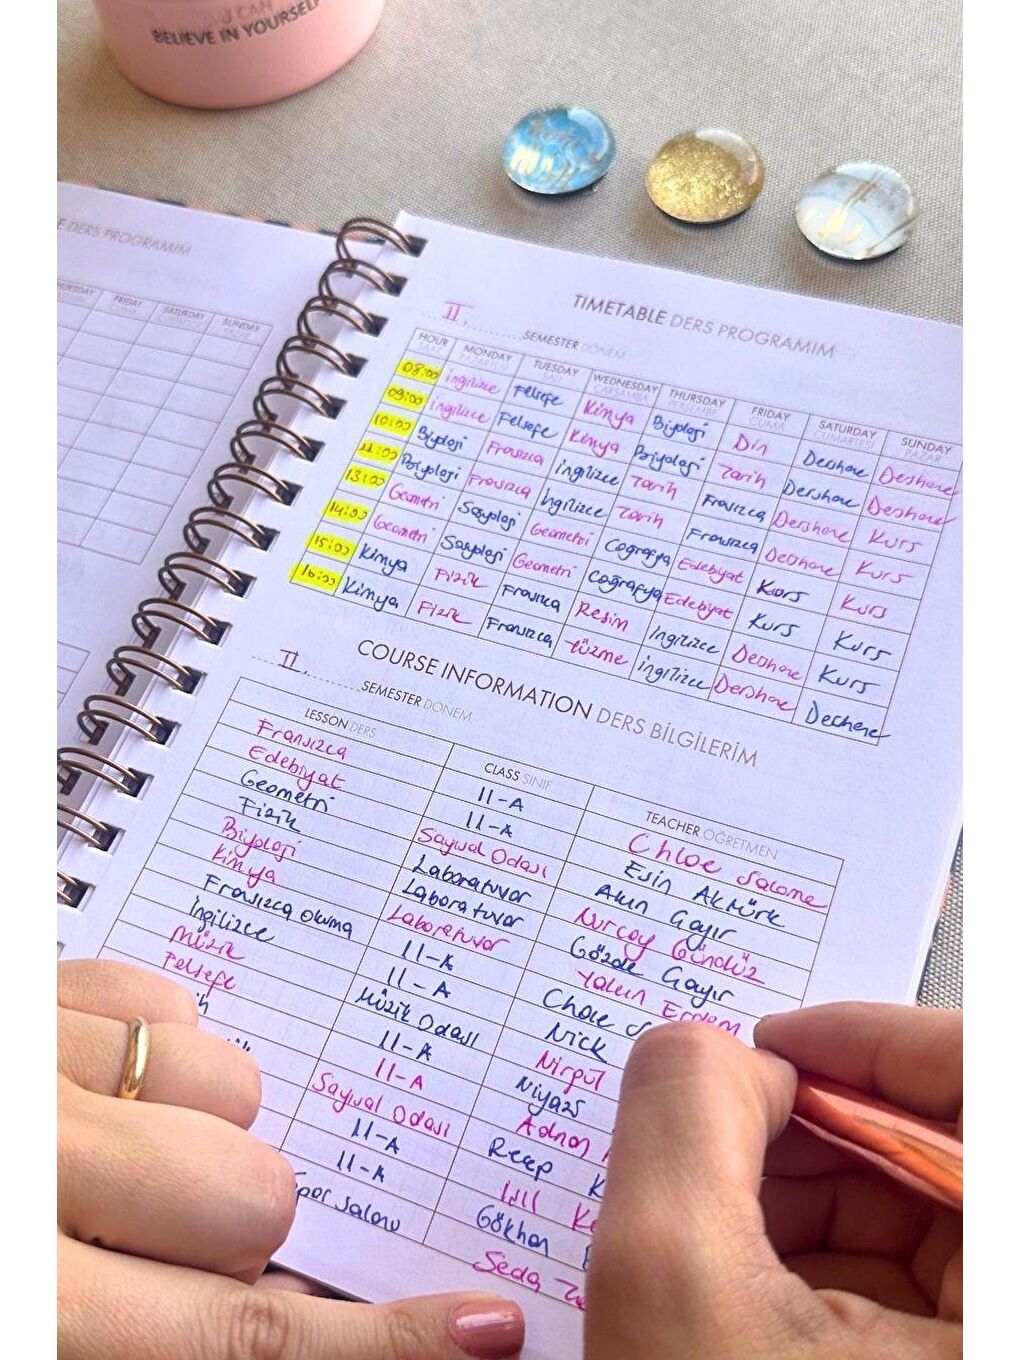 YOU CAN
BELIEVE IN YOURSELF
E DERS PROGRAMIM
THURSDAY FRIDAY SATURDAY SUNDAY
CUMA CUMARTESİ PAZAR
TIMETABLE DERS PROGRAMIM
II. SEMESTER DÖNEM
HOUR MONDAY TUESDAY WEDNESDAY THURSDAY FRIDAY SATURDAY SUNDAY
SAAT PAZARTESİ SALI ÇARŞAMBA PERŞEMBE CUMA CUMARTESİ PAZAR
08:00 İngilizce Felsefe Kimya Biyoloji Din Dershane Dershane
09:00 İngilizce Felsefe Kimya Biyoloji Tarih Dershane Dershane
10:00 Biyoloji Fransızca İngilizce Tarih Fransızca Dershane Kurs
11:00 Biyoloji Fransızca İngilizce Tarih Fransızca Dershane Kurs
13:00 Geometri Sosyoloji Geometri Coğrafya Edebiyat Kurs Kurs
14:00 Geometri Sosyoloji Geometri Coğrafya Edebiyat Kurs Kurs
15:00 Kimya Fizik Fransızca Resim İngilizce Dershane Kurs
16:00 Kimya Fizik Fransızca Yüzme İngilizce Dershane Dershane
COURSE INFORMATION DERS BİLGİLERİM
II. SEMESTER DÖNEM
LESSON DERS CLASS SINIF TEACHER ÖĞRETMEN
Fransızca 11-A Chloe Salome
Edebiyat 11-A Esin Aktürk
Geometri Sayısal Odası Akın Gayır
Fizik Laboratuvar Nurçay Gündüz
Biyoloji Laboratuvar Gözde Gayır
Kimya Laboratuvar Yalın Erdem
Fransızca Okuma 11-A Chloe S
İngilizce 11-A Nick
Müzik Müzik Odası Nirgül
Felsefe 11-A Niyazi
ih 11-A Adnan
Sayısal Odası Recep K
11-A Işıl Ke
11-A Gökhan
Spor Salonu Seda